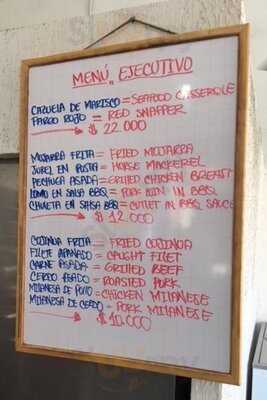 MENÚ, EJECUTIVO
CAZUELA DE MARISCO = SEAFOOD CASSEROLE
PARGO ROJO = RED SNAPPER
$ 22.000
MOJARRA FRITA = FRIED MOJARRA
JUREL EN POSTA = HORSE MACKEREL
PECHUGA ASADA = GRILLED CHICKEN BREAST
LOMO EN SALSA BBQ = PORK LOIN IN BBQ
CHULETA EN SALSA BBQ = CUTLET IN BBQ SAUCE
$ 12.000
COJINOA FRITA = FRIED COJINOA
FILETE APANADO = CAUGHT FILET
CARNE ASADA = GRILLED BEEF
CERDO ASADO = ROASTED PORK
MILANESA DE POLLO = CHICKEN MILANESE
MILANESA DE CERDO = PORK MILANESE
$ 10.000